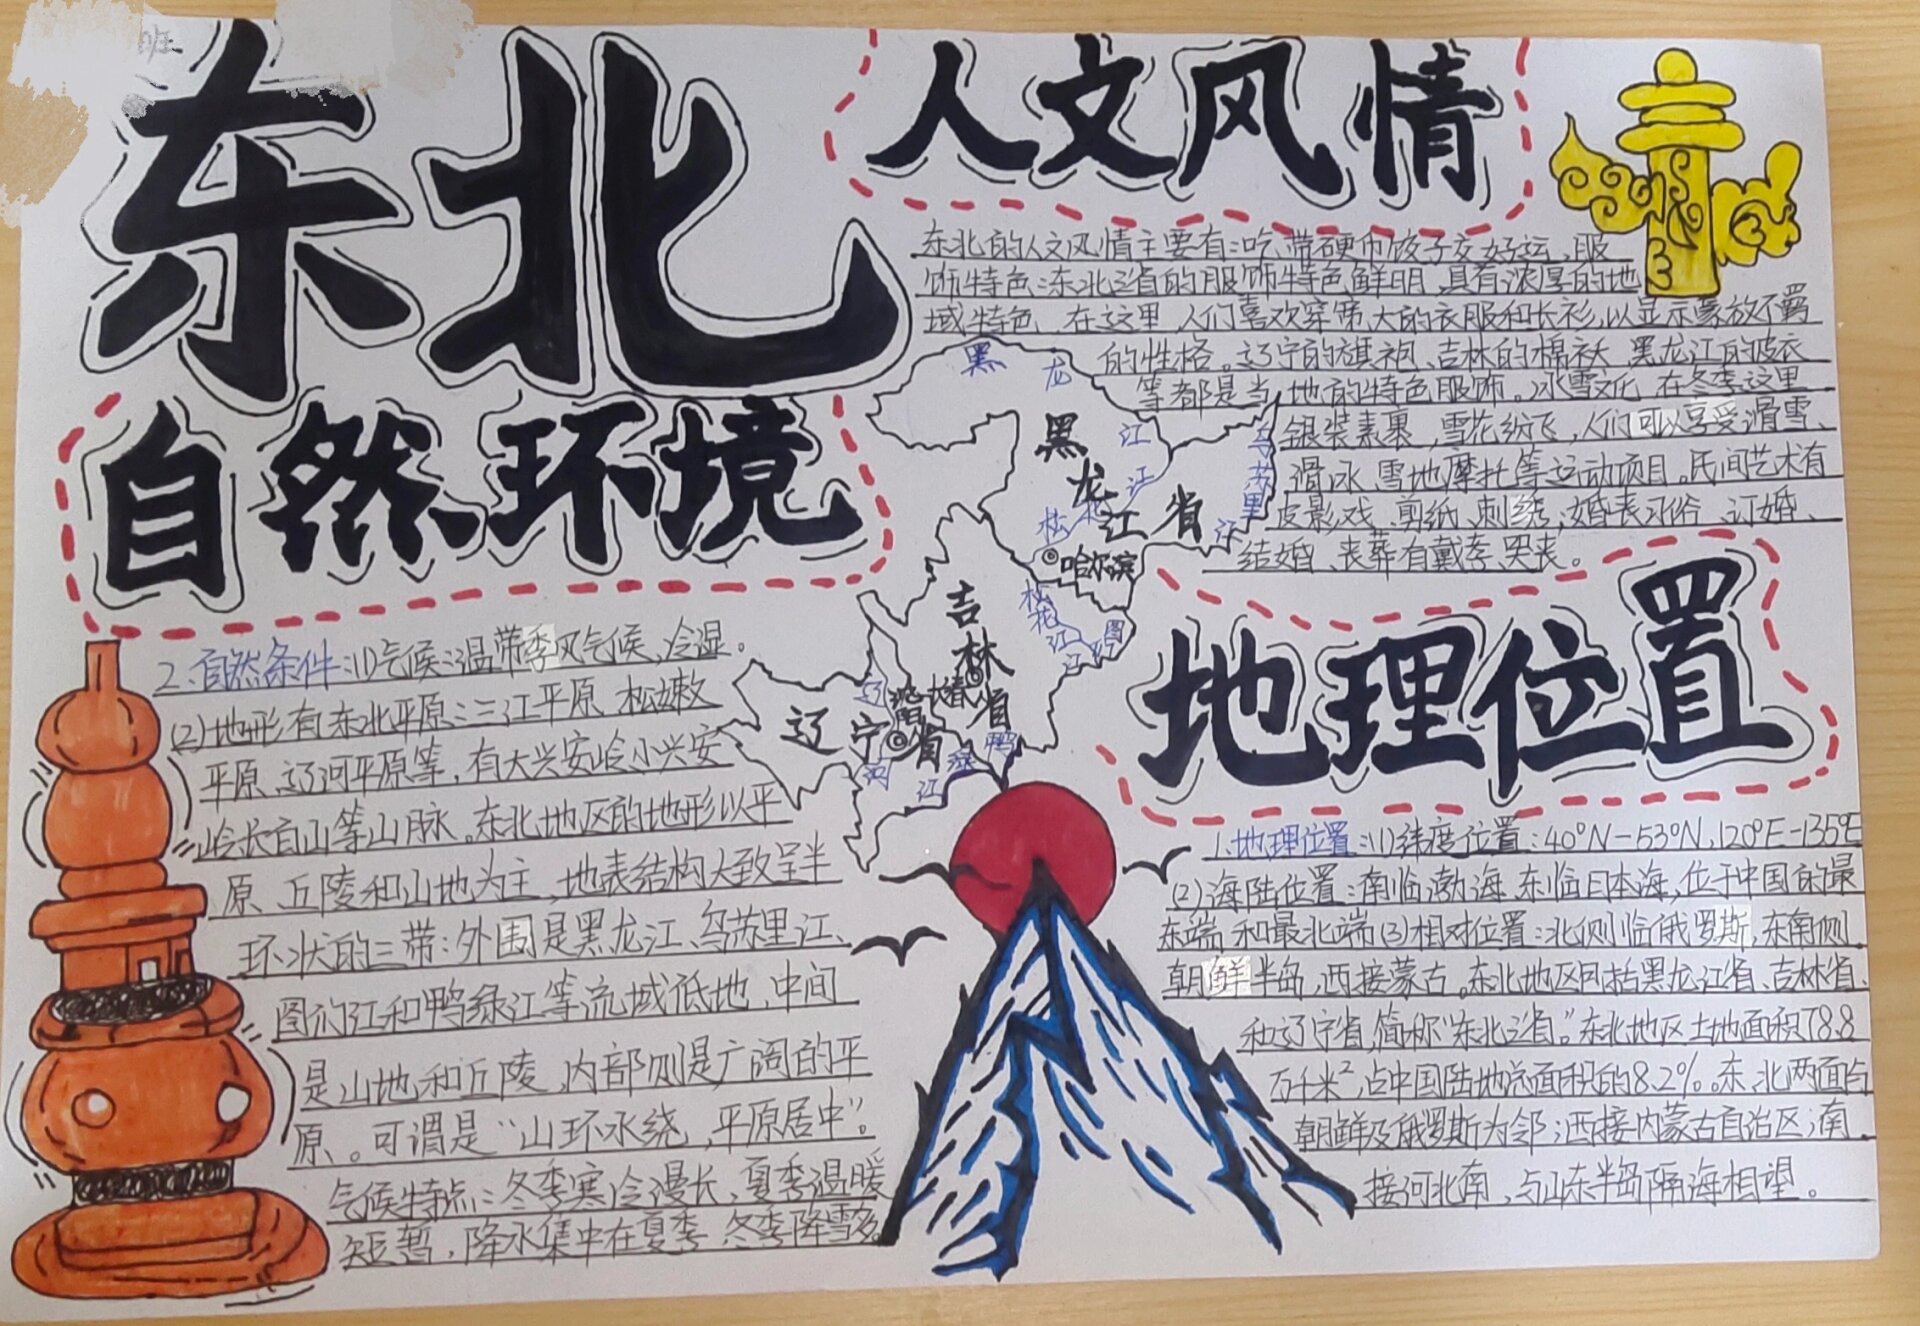 班
东北
人文风情
东北的人文风情主要有:吃带硬币饺子交好运,服
饰特色:东北三省的服饰特色鲜明,具有浓厚的地
域特色,在这里,人们喜欢穿宽大的衣服和长衫,以显示豪放不羁
的性格。辽宁的旗袍、吉林的棉袄、黑龙江的皮衣
等都是当地的特色服饰。冰雪文化,在冬季这里
银装素裹,雪花纷飞,人们可以享受滑雪、
滑冰、雪地摩托等运动项目。民间艺术有
皮影戏、剪纸、刺绣;婚丧习俗、订婚、
结婚、丧葬有戴孝、哭丧。
自然环境
2.自然条件:(1)气候:温带季风气候,冷湿。
(2)地形有东北平原:三江平原、松嫩
平原、辽河平原等,有大兴安岭小兴安
岭长白山等山脉。东北地区的地形以平
原、丘陵和山地为主,地表结构大致呈半
环状的三带:外围是黑龙江、乌苏里江、
图们江和鸭绿江等流域低地,中间
是山地和丘陵,内部则是广阔的平
原。可谓是“山环水绕,平原居中”。
气候特点:冬季寒冷漫长,夏季温暖
短暂,降水集中在夏季,冬季降雪多。
黑龙江
黑龙江省
乌苏里江
松花江
哈尔滨
吉林省
松花江
图们江
长春
辽宁省
沈阳
辽河
鸭绿江
地理位置
1.地理位置:(1)纬度位置:40°N-53°N,120°E-135°E
(2)海陆位置:南临渤海,东临日本海,位于中国的最
东端和最北端(3)相对位置:北侧临俄罗斯,东南侧
朝鲜半岛,西接蒙古。东北地区包括黑龙江省、吉林省、
和辽宁省,简称“东北三省。”东北地区土地面积78.8
万千米²,占中国陆地总面积的8.2%。东、北两面与
朝鲜及俄罗斯为邻;西接内蒙古自治区;南
接河北南,与山东半岛隔海相望。